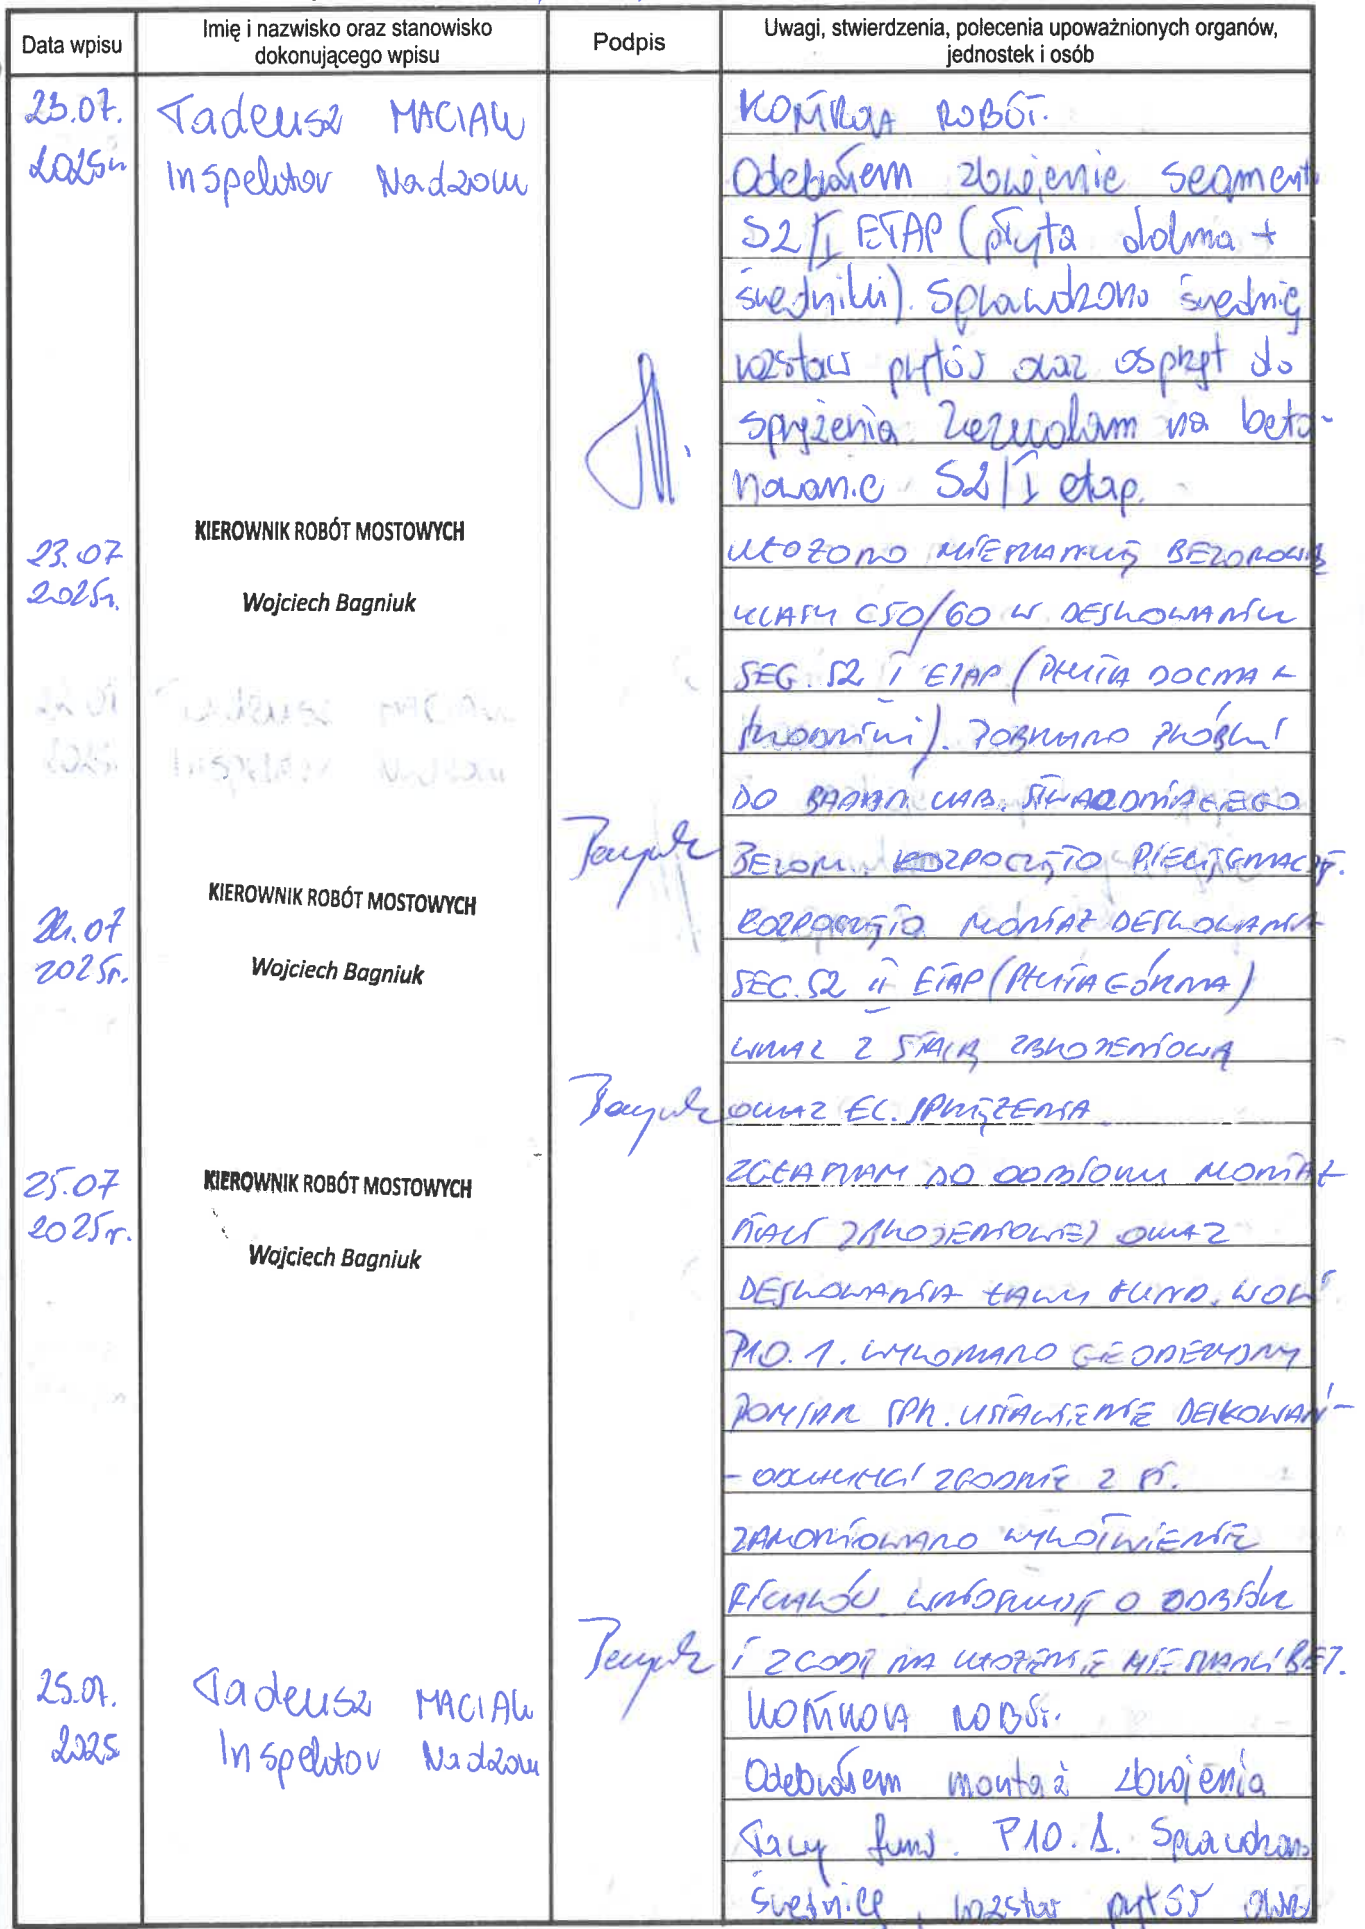 Data wpisu
Imię i nazwisko oraz stanowisko
dokonującego wpisu
Podpis
Uwagi, stwierdzenia, polecenia upoważnionych organów,
jednostek i osób
23.07.
2025r
Tadeusz MACIAK
Inspektor Nadzoru
KONTROLA ROBÓT.
Odebrałem zbrojenie segment
S2/I ETAP (płyta dolna +
średniki). Sprawdzono średnię
rozstaw prętów oraz osprzęt do
sprężenia. Zezwalam na beto-
nowanie S2/I etap.
23.07
2025r.
KIEROWNIK ROBÓT MOSTOWYCH
Wojciech Bagniuk
UŁOŻONO MIESZANKĘ BETONOWĄ
KLASY C50/60 W DESKOWANIU
SEG. S2 I ETAP (PŁYTA DOLNA +
ŚRODNIKI). POBRANO PRÓBKI
DO BADAŃ LAB. STWARDNIAŁEGO
BETONU. ROZPOCZĘTO PIELĘGNACJĘ.
24.07
2025r.
KIEROWNIK ROBÓT MOSTOWYCH
Wojciech Bagniuk
ROZPOCZĘTO MONTAŻ DESKOWANIA
SEG. S2 II ETAP (PŁYTA GÓRNA)
WRAZ Z STALĄ ZBROJENIOWĄ
ORAZ EL. SPRĘŻENIA.
25.07
2025r.
KIEROWNIK ROBÓT MOSTOWYCH
Wojciech Bagniuk
ZGŁASZAM DO ODBIORU MONTAŻ
STALI ZBROJENIOWEJ ORAZ
DESKOWANIA ŁAWY FUND.
P10.1. WYKONANO GEODEZYJNY
POMIAR SPR. USTAWIENIE DESKOWAŃ-
- ODCHYŁKI ZGODNIE Z ST.
ZAMONTOWANO
WNIOSKUJĘ O ODBIÓR
I ZGODĘ NA UŁOŻENIE MIESZANKI BET.
25.07.
2025
Tadeusz MACIAK
Inspektor Nadzoru
KONTROLA ROBÓT.
Odebrałem montaż zbrojenia
ławy fund. P10.1. Sprawdzono
średnice, rozstaw prętów oraz